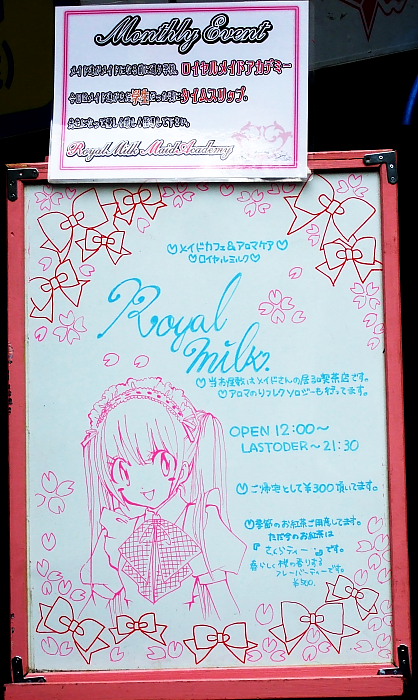 Monthly Event
ロイヤルメイドアカデミー
タイムスリップ。
Royal Milk Maid Academy
♡メイドカフェ&アロマケア♡
♡ロイヤルミルク♡
Royal
milk.
♡当お屋敷はメイドさんの居る喫茶店です。
♡アロマのリフレクソロジーも行ってます。
OPEN 12:00~
LASTODER~21:30
♡ご帰宅として¥300頂いてます。
♡季節のお紅茶ご用意してます。
ただ今のお紅茶は
『さくらティー』です。
春らしく桜の香りする
フレーバーティーです。
¥500.